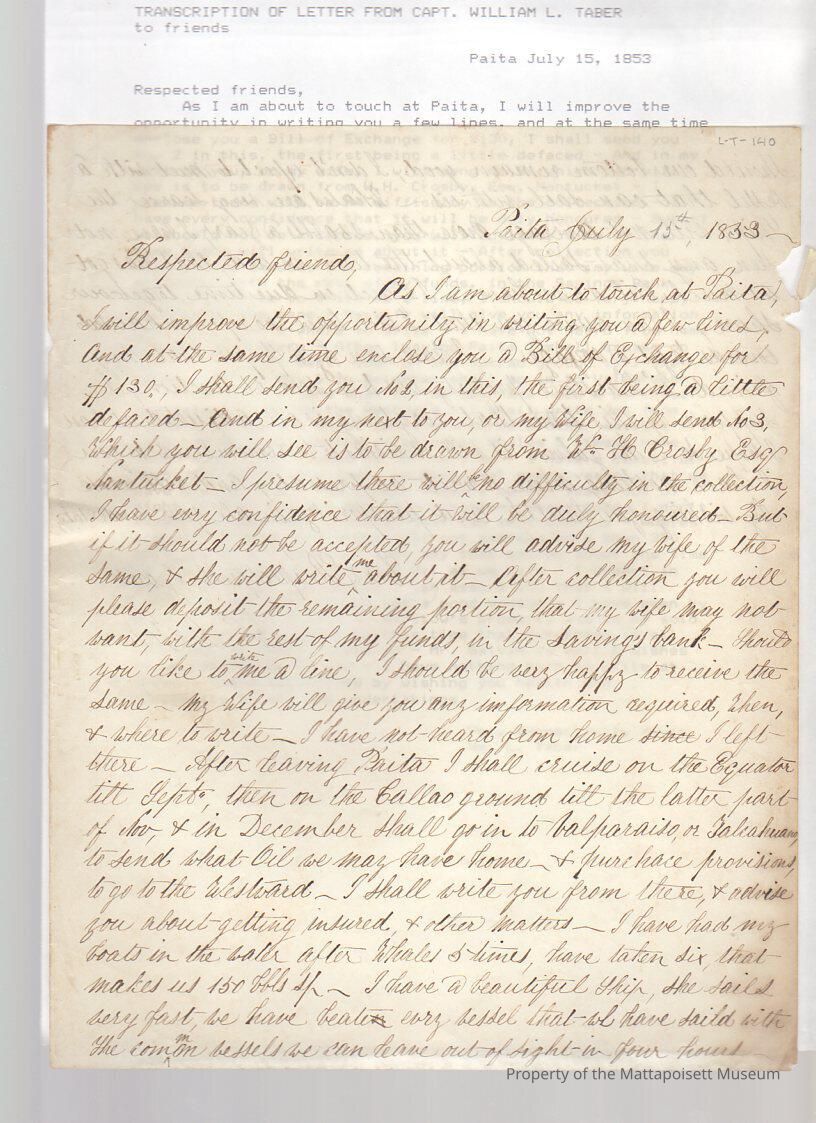 TRANSCRIPTION OF LETTER FROM CAPT. WILLIAM L. TABER
to friends
Paita July 15, 1853
Respected friends,
As I am about to touch at Paita, I will improve the
opportunity in writing you a few lines, and at the same time
L-T-140
Paita July 15th, 1853
Respected friend,
As I am about to touch at Paita,
I will improve the opportunity in writing you a few lines,
And at the same time enclose you a Bill of Exchange for
$130., I shall send you No 2, in this, the first being a little
defaced _ And in my next to you, or my Wife, I will send No 3,
Which you will see is to be drawn from Wm H Crosby Esq
Nantucket _ I presume there will be no difficulty in the collection,
I have evry confidence that it will be duly honoured _ But
if it should not be accepted, you will advise my wife of the
same, & she will write me about it _ After collection you will
please deposit the remaining portion, that my wife may not
want, with the rest of my funds, in the Savings bank _ Should
you like to write me a line, I should be very happy to receive the
same _ my Wife will give you any imformation required, When,
& where to write _ I have not heard from home since I left
there _ After leaving Paita I shall cruise on the Equator
till Septr, then on the Callao ground till the latter part
of Nov, & in December shall go in to Valparaiso, or Talcahuano,
to send what Oil we may have home _ & purchace provisions,
to go to the Westward _ I shall write you from there, & advise
you about getting insured, & other matters _ I have had my
boats in the water after Whales 5 times, have taken six, that
makes us 150 bbls Sp _ I have a beautiful Ship, she sails
very fast, we have beaten evry vessel that we have saild with
The common vessels we can leave out of sight in four hours _
Property of the Mattapoisett Museum